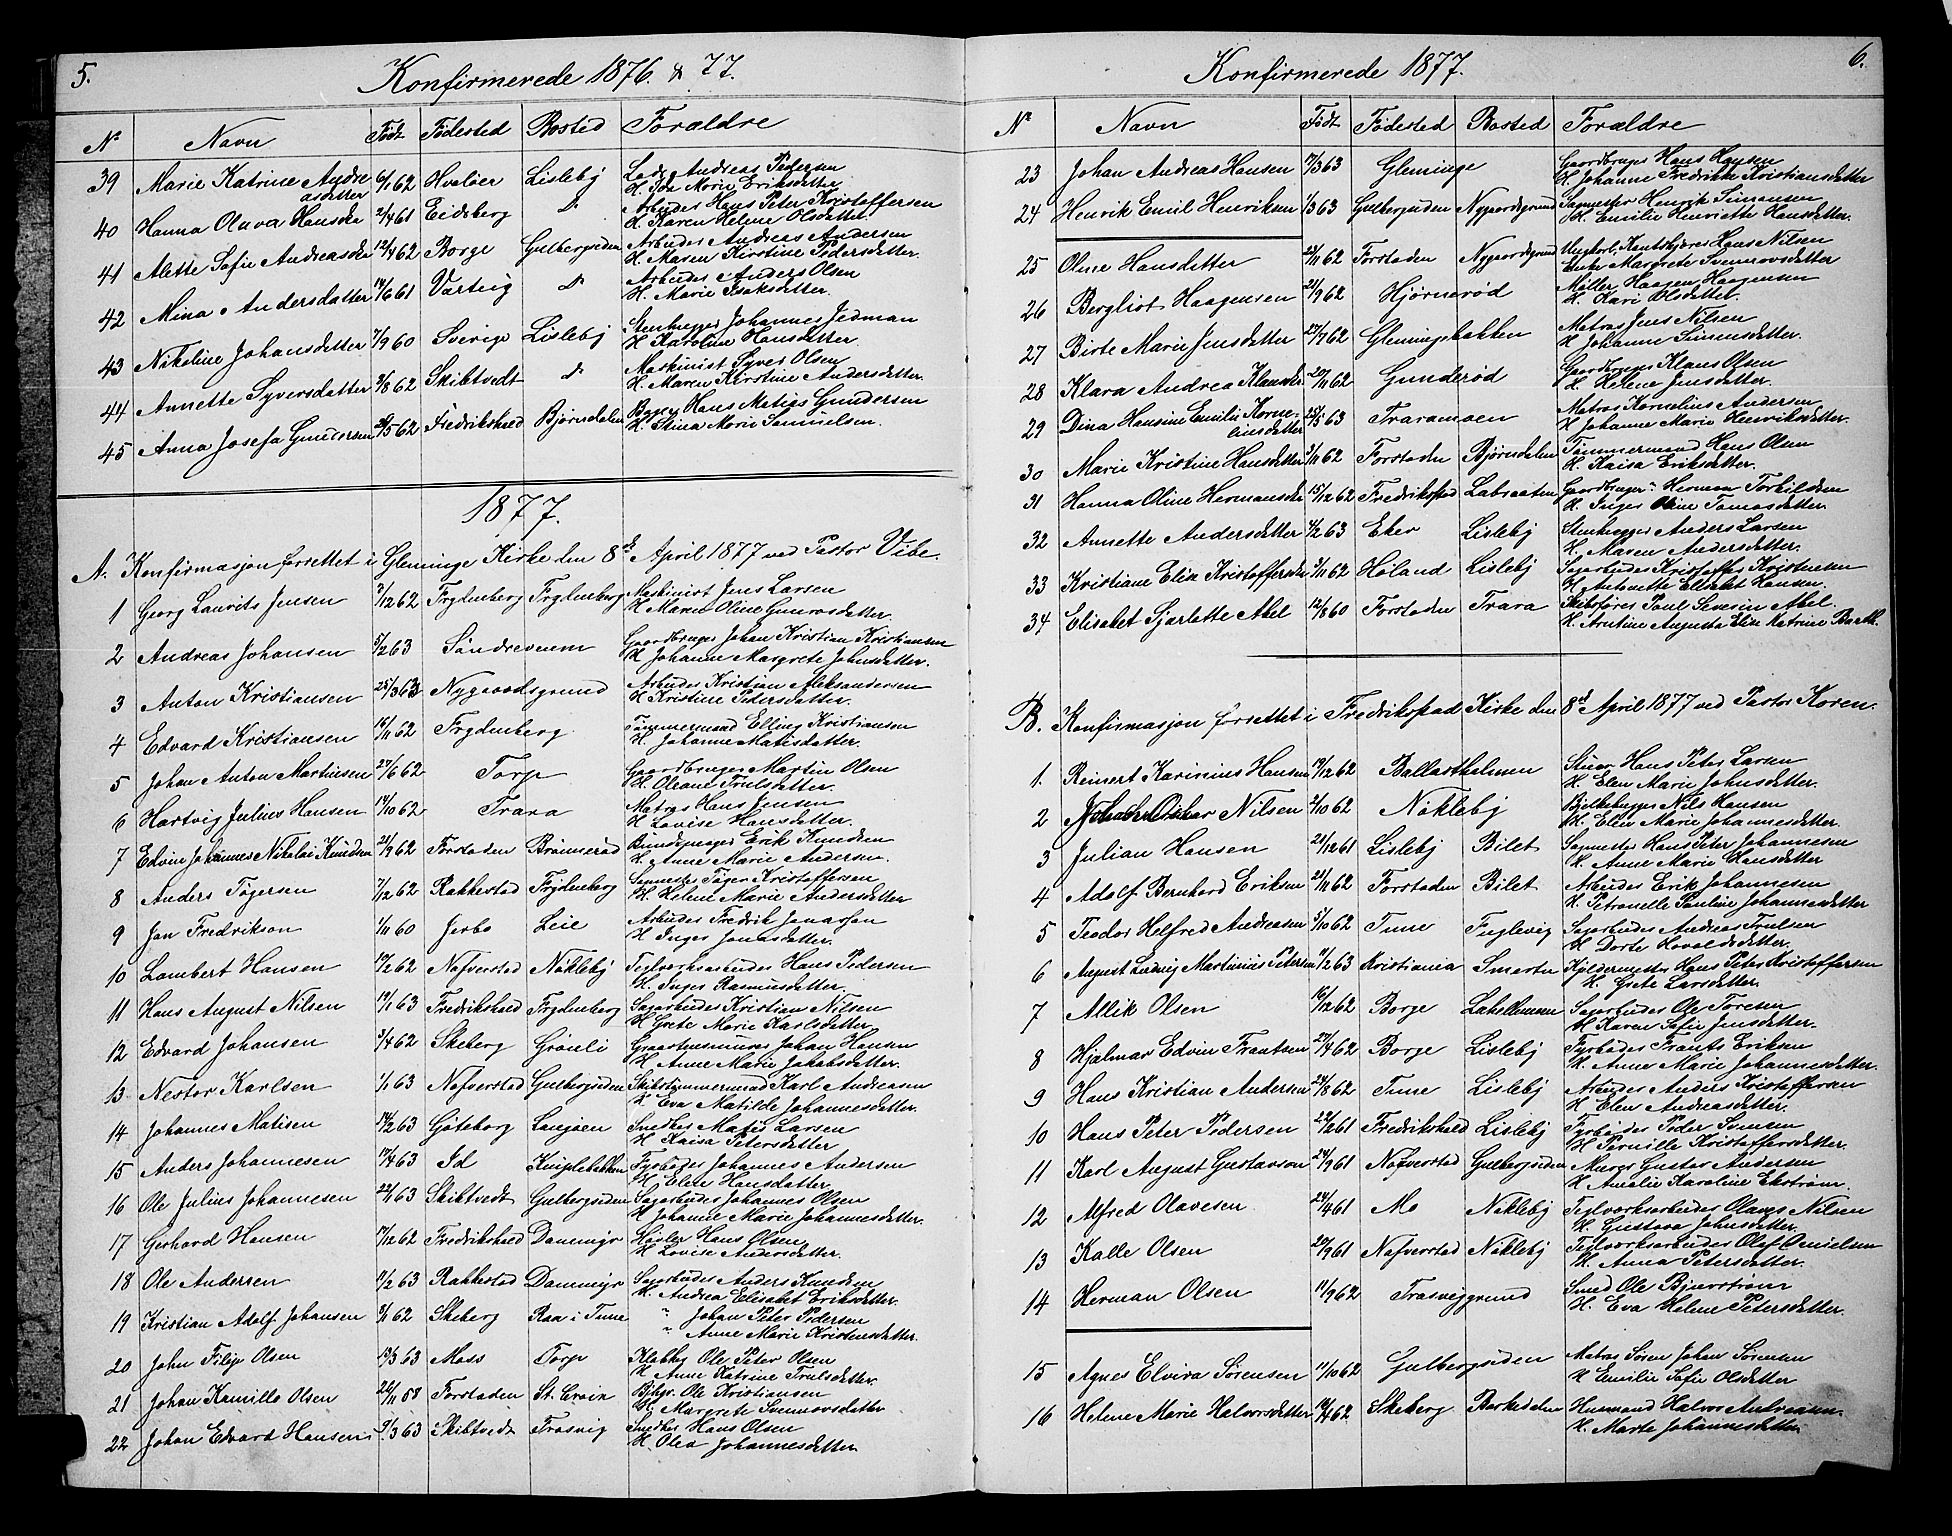 5.
Konfirmerede 1876. & 77.
No Navn Født Fødested Bosted Forældre
39 Marie Katrine Andreasdetter 6/1 62 Hvaløer Lisleby Andreas Pedersen
H. Ida Marie Eriksdetter
40 Hanna Olava Hansda 2/4 61 Eidsberg do Arbeider Hans Peter Kristoffersen
H. Karen Helene Olsdetter
41 Alette Sofie Andreasda 12/4 62 Borge Gulbergsiden Arbeider Andreas Andersen
H. Maren Kirstine Pedersdetter.
42 Mina Andersdatter 14/6 61 Varteig do Arbeider Anders Olsen
H. Marie Isaksdetter.
43 Nikoline Johansdetter 7/9 60 Sverige Lisleby Stenhugger Johannes Jedman
H. Karoline Hansdetter.
44 Annette Syversdatter 2/8 62 Skibtvedt do Maskinist Syver Olsen
H. Maren Kirstine Andersdetter.
45 Anna Josefa Gundersen 5 62 Fredrikshald Bjørndalen Hans Matias Gundersen
H. Stina Marie Samuelsen.
1877.
A. Konfirmasjon forrettet i Glemminge Kirke den 8de April 1877 ved Pastor Vibe.
1 Georg Laurits Jensen 2/12 62 Frydenberg Frydenberg Maskinist Jens Larsen
H. Maren Oline Gunrosdetter
2 Andreas Johansen 5/2 63 Søndrevenem Gaardbruger Johan Kristian Kristiansen
H. Johanne Margrete Johnsdetter.
3 Anton Kristiansen 25/3 63 Nygaardsgrund Arbeider Kristian Aleksandersen
H. Kristine Pedersdetter.
4 Edvard Kristiansen 16/11 62 Frydenberg Tømmermand Elling Kristiansen
H. Johanne Matisdatter.
5 Johan Anton Martinsen 29/6 62 Torp Gaardbruger Martin Olsen
H. Oleane Trulsdetter.
6 Hartvig Julius Hansen 14/10 62 Trara Matros Hans Jensen
H. Lovise Hansdetter.
7 Edvin Johannes Nikolai Knudsen 21/9 62 Forstaden Brønnerød Erik Knudsen
H. Anne Marie Andersen.
8 Anders Tøgersen 7/2 62 Rakkestad Frydenberg Sagmester Tøger Kristoffersen
H. Helene Marie Andersdetter
9 Jan Fredrikson 1/11 60 Jerbo Leie Arbeider Fredrik Jonasson
H. Inger Jonasdetter.
10 Lambert Hansen 19/2 62 Nafverstad Nøkleby Teglverksarbeider Hans Pedersen
H. Inger Rasmusdetter.
11 Hans August Nilsen 19/1 63 Fredrikshald Frydenberg Sagarbeider Kristian Nilsen
H. Grete Marie Karlsdetter.
12 Edvard Johansen 3/4 62 Skeberg Grønli Graastensmurer Johan Hansen
H. Anne Marie Jakobsdetter.
13 Nestor Karlsen 1/1 63 Nafverstad Gulbergsiden Skibstømmermand Karl Andreasen
H. Eva Matilde Johannesdetter.
14 Johannes Matisen 14/2 63 Gøteborg Lanejøen Snedker Matis Larsen
H. Kaisa Petersdetter
15 Anders Johannesen 17/4 63 Id Kniplebakken Fyrbøder Johannes Andersen
H. Elen Hansdatter.
16 Ole Julius Johannesen 22/1 63 Skibtvedt Gulbergsiden Sagarbeider Johannes Olsen
H. Johanne Marie Johannesdetter.
17 Gerhard Hansen 17/12 62 Fredrikshald Dammyr Høvler Hans Olsen
H. Lovise Andersdetter.
18 Ole Andersen 17/2 63 Rakkestad Dammyr Sagarbeider Anders Knudsen
H. Andrea Elisabet Eriksdetter.
19 Kristian Adolf Johansen 3/1 62 Skeberg Raa i Tune " Johan Peter Pedersen
" Anne Marie Kristensdetter.
20 John Filip Olsen 19/3 63 Moss Torp Ole Peter Olsen
H. Anne Katrine Trulsdetter.
21 Johan Kamillo Olsen 26/11 58 Forstaden St. Croix Ole Kristiansen
H. Margrete Svennovsdatter
22 Johan Edvard Hansen 9/3 63 Skibtvedt Trosvig Snedker Hans Olsen
H. Olea Johannesdetter.
6.
Konfirmerede 1877.
No Navn Født Fødested Bosted Forældre
23 Johan Andreas Hansen 17/3 63 Gleminge Gaardbruger Hans Hansen
H. Johanne Fredrikke Kristiansdetter
24 Henrik Emil Henriksen 1/3 63 Gulbergsiden Nygaardsgrund Sagmester Henrik Simonsen
H. Emilie Henriette Hansdetter.
25 Oline Hansdetter 22/11 62 Forstaden Nygaardsgrund Ungkarl, Hans Nilsen
Enke Margrete Svennovsdetter
26 Bergliot Haagensen 21/9 62 Hjørnerød Møller Haagen Haagensen
H. Kari Olsdetter.
27 Birte Marie Jensdetter 27/7 62 Glemingebakken Matros Jens Nilsen
H. Johanne Simensdetter.
28 Klara Andrea Klausda 20/11 62 Gunderød Gaardbruger Klaus Olsen
H. Helene Jensdetter.
29 Dina Hansine Emilie Korneliusdetter 25/1 63 Traramoen Matros Kornelius Andersen
H. Johanne Marie Henriksdetter.
30 Marie Kristine Hansdetter 3/11 62 Forstaden Bjørndalen Tømmermand Hans Olsen
H. Kaisa Eriksdetter.
31 Hanna Oline Hermansda 15/12 62 Fredrikstad Labraaten Gaardbruger Herman Torkildsen
H. Inger Oline Tomasdetter.
32 Annette Andersdetter 4/2 63 Eker Lisleby Stenhugger Anders Larsen
H. Maren Andersdetter.
33 Kristiane Elise Kristoffersda 3/11 62 Høland Lisleby Sagarbeider Kristoffer Kristensen
H. Antonette Elisabet Hansen.
34 Elisabet Sjarlotte Abel 12/8 60 Forstaden Trara Skibsfører Paul Severin Abel.
H. Arntine Augusta Elise Katrine Barth.
B. Konfirmasjon forrettet i Fredrikstad Kirke den 8de April 1877 ved Pastor Koren.
1. Reinert Karinius Hansen 19/12 62 Ballastholmen Stuer Hans Peter Larsen
H. Elen Marie Johnsdetter.
2 Johan Oskar Nilsen 2/10 62 Nøkleby Bjelkehugger Nils Hansen
H. Elen Marie Johannesdetter.
3 Julian Hansen 21/12 61 Lisleby Bilet Sagmester Hans Peter Johannesen
H. Anne Marie Hansdetter
4 Adolf Bernhard Eriksen 21/11 62 Forstaden Bilet Arbeider Erik Johannesen
H. Petronelle Pauline Johannesdetter
5 Teodor Helfred Andreasen 5/10 62 Tune Fuglevig Sagarbeider Andreas Trulsen
H. Dorte Havaldsdetter.
6 August Ludvig Martinius Petersen 7/2 63 Kristiania Smerta Kjeldermester Hans Peter Kristoffersen
H. Grete Larsdetter.
7 Allik Olsen 16/12 62 Borge Lahellemoen Sagarbeider Ole Toresen
H. Karen Sofie Jensdetter.
8 Hjalmar Edvin Frantsen 27/4 62 Borge Lisleby Fyrbøder Frants Eriksen
H. Anne Marie Johannesdetter.
9 Hans Kristian Andersen 24/8 62 Tune Lisleby Arbeider Anders Kristoffersen
H. Elen Andreasdetter.
10 Hans Peter Pedersen 27/2 61 Fredrikshald Lisleby Fyrbøder Peder Simensen
H. Pernille Kristoffersdetter.
11 Karl August Gustavson 24/9 61 Nafverstad Gulbergsiden Murer Gustav Andersen
H. Amalie Karoline Ekstrøm.
12 Alfred Olavesen 24/4 61 Mo Nøkleby Teglverksarbeider Olaves Nilsen
H. Gustava Johnsdetter.
13 Kalle Olsen 20/9 61 Nafverstad Nøkleby Teglverksarbeider Olaf Danielsen
H. Anna Petersdetter.
14 Herman Olsen 11/9 62 Trosviggrund Smed Ole Bjurstrøm
H. Eva Helene Petersdetter.
15 Agnes Elvira Sørensen 11/10 62 Gulbergsiden Matros Søren Johan Sørensen
H. Emilie Sofie Olsdetter
16 Helene Marie Halvorsdetter 10/4 62 Skeberg Borkedalen Husmand Halvor Andreassen
H. Marte Johannesdetter.